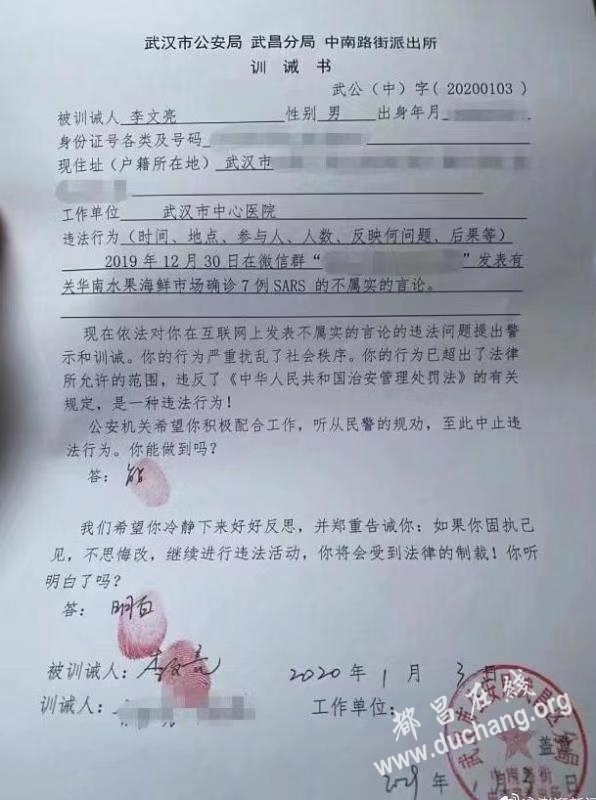 武汉市公安局 武昌分局 中南路街派出所
训 诫 书
武公（中）字（20200103）
被训诫人 李文亮 性别 男 出身年月
身份证号各类及号码
现住址（户籍所在地） 武汉市
工作单位 武汉市中心医院
违法行为（时间、地点、参与人、人数、反映何问题、后果等）
2019 年 12 月 30 日在微信群“ ”发表有
关华南水果海鲜市场确诊 7 例 SARS 的不属实的言论。
现在依法对你在互联网上发表不属实的言论的违法问题提出警
示和训诫。你的行为严重扰乱了社会秩序。你的行为已超出了法律
所允许的范围，违反了《中华人民共和国治安管理处罚法》的有关
规定，是一种违法行为！
公安机关希望你积极配合工作，听从民警的规劝，至此中止违
法行为。你能做到吗？
答：能
我们希望你冷静下来好好反思，并郑重告诫你：如果你固执己
见，不思悔改，继续进行违法活动，你将会受到法律的制裁！你听
明白了吗？
答：明白
被训诫人：李文亮 2020 年 1 月 3 日
训诫人： 工作单位：
盖章
年 1 月 3 日
都昌在线
www.duchang.org